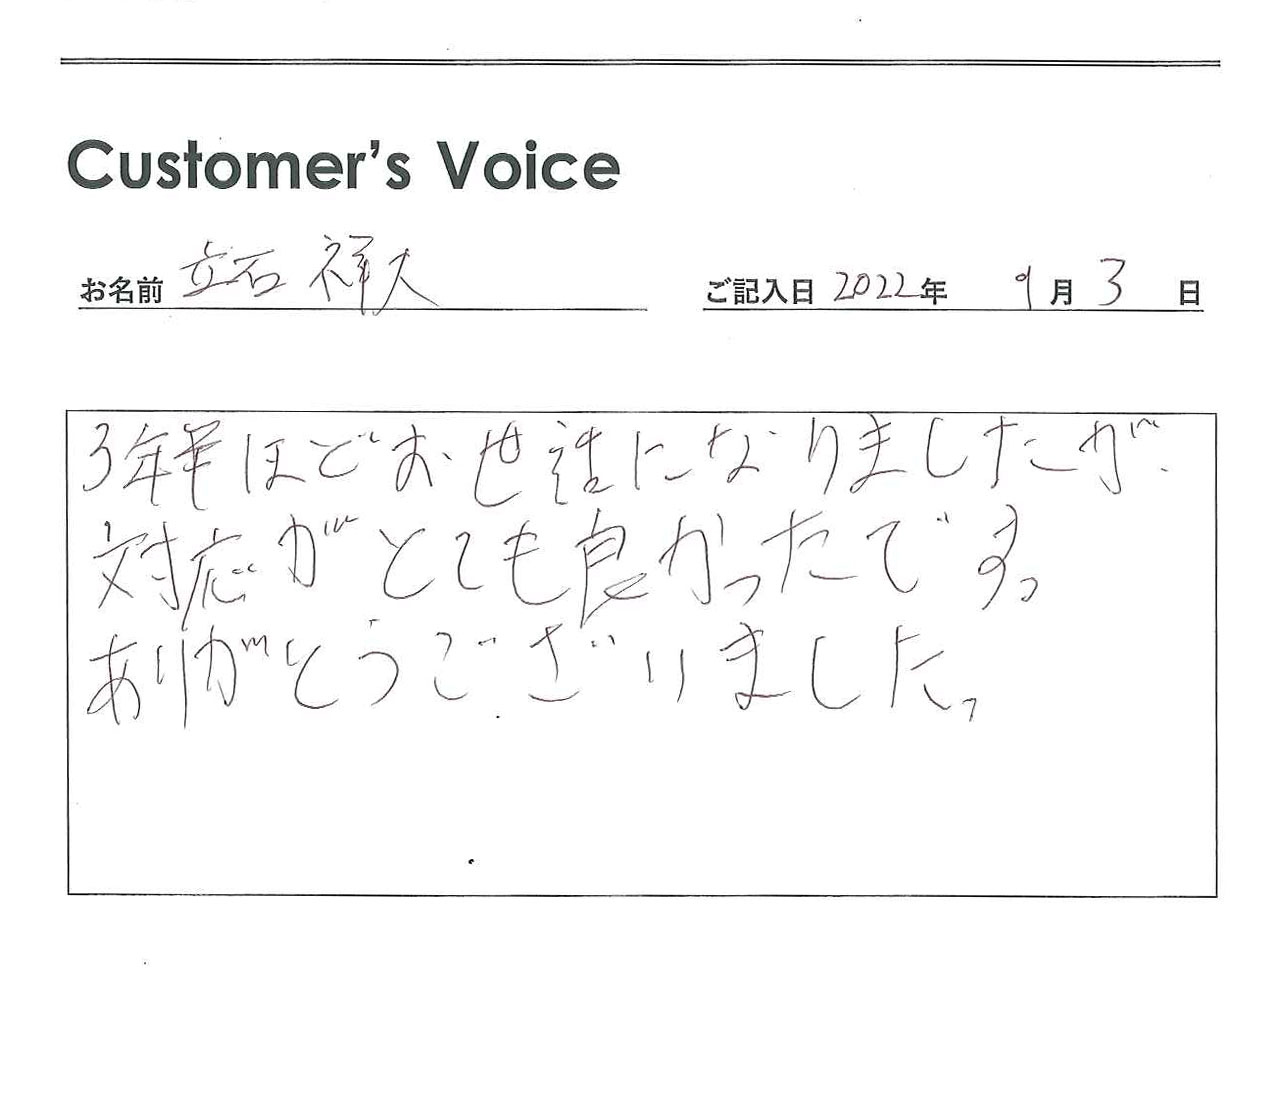 Customer's Voice
お名前 立石 祥大 ご記入日 2022年 9月 3 日
3年半ほどお世話になりましたが、
対応がとても良かったです。
ありがとうございました。